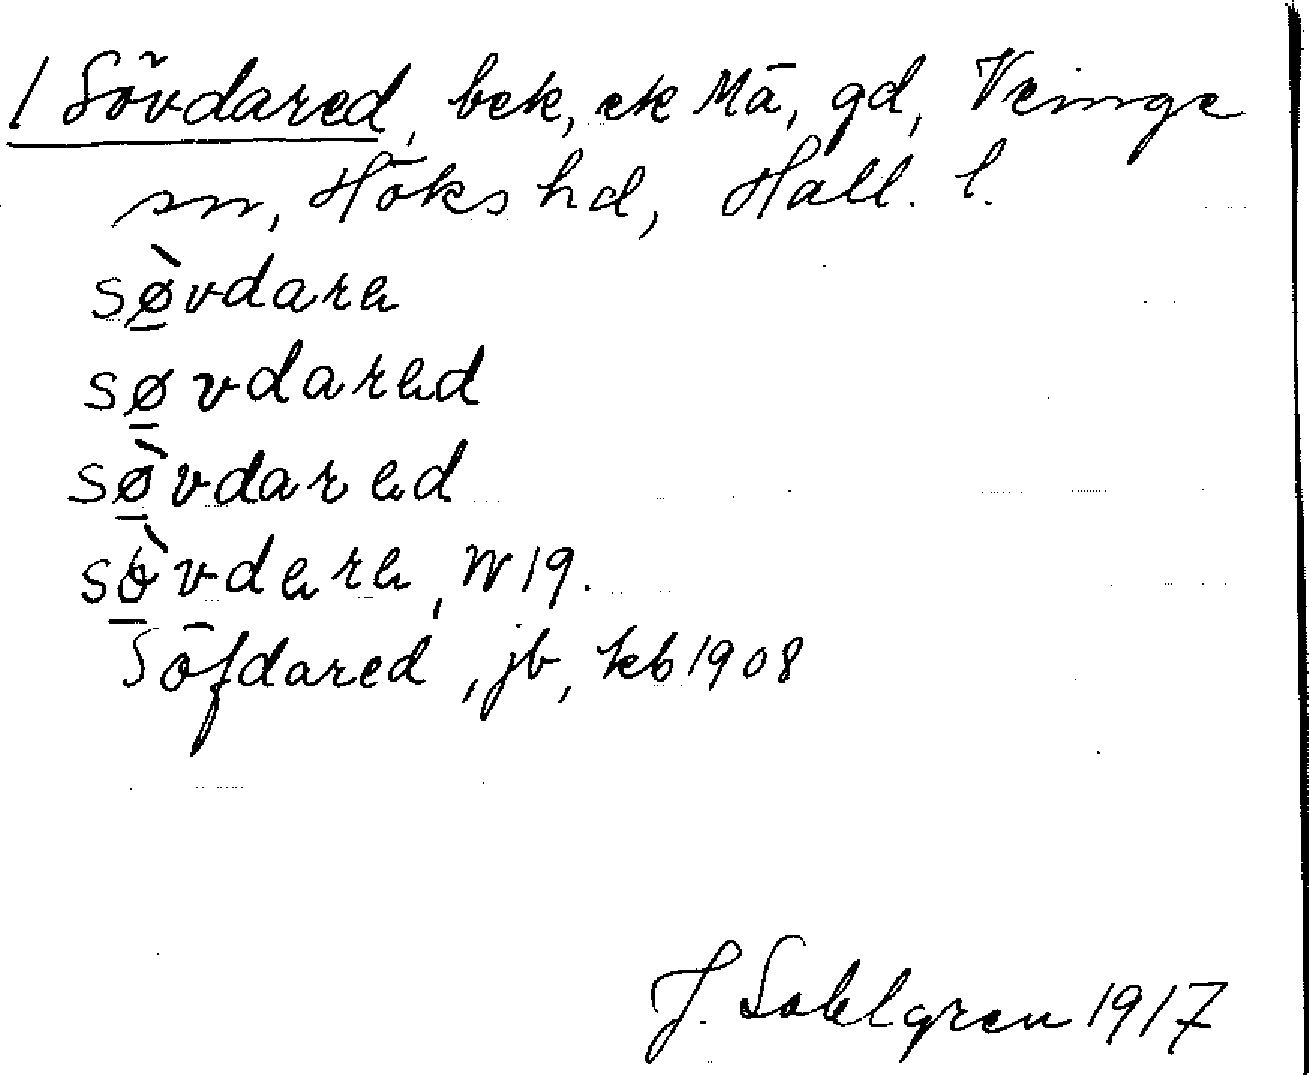 1 Sövdared, bek, ek Mā, gd, Veinge
sn, Höks hd, Hall. l.
sø̠̀vdara
sø̠vdarad
sø̠̀vdarad
sø̠̀vdara, W 19.
Söfdared, jb, kb 1908
J. Sahlgren 1917